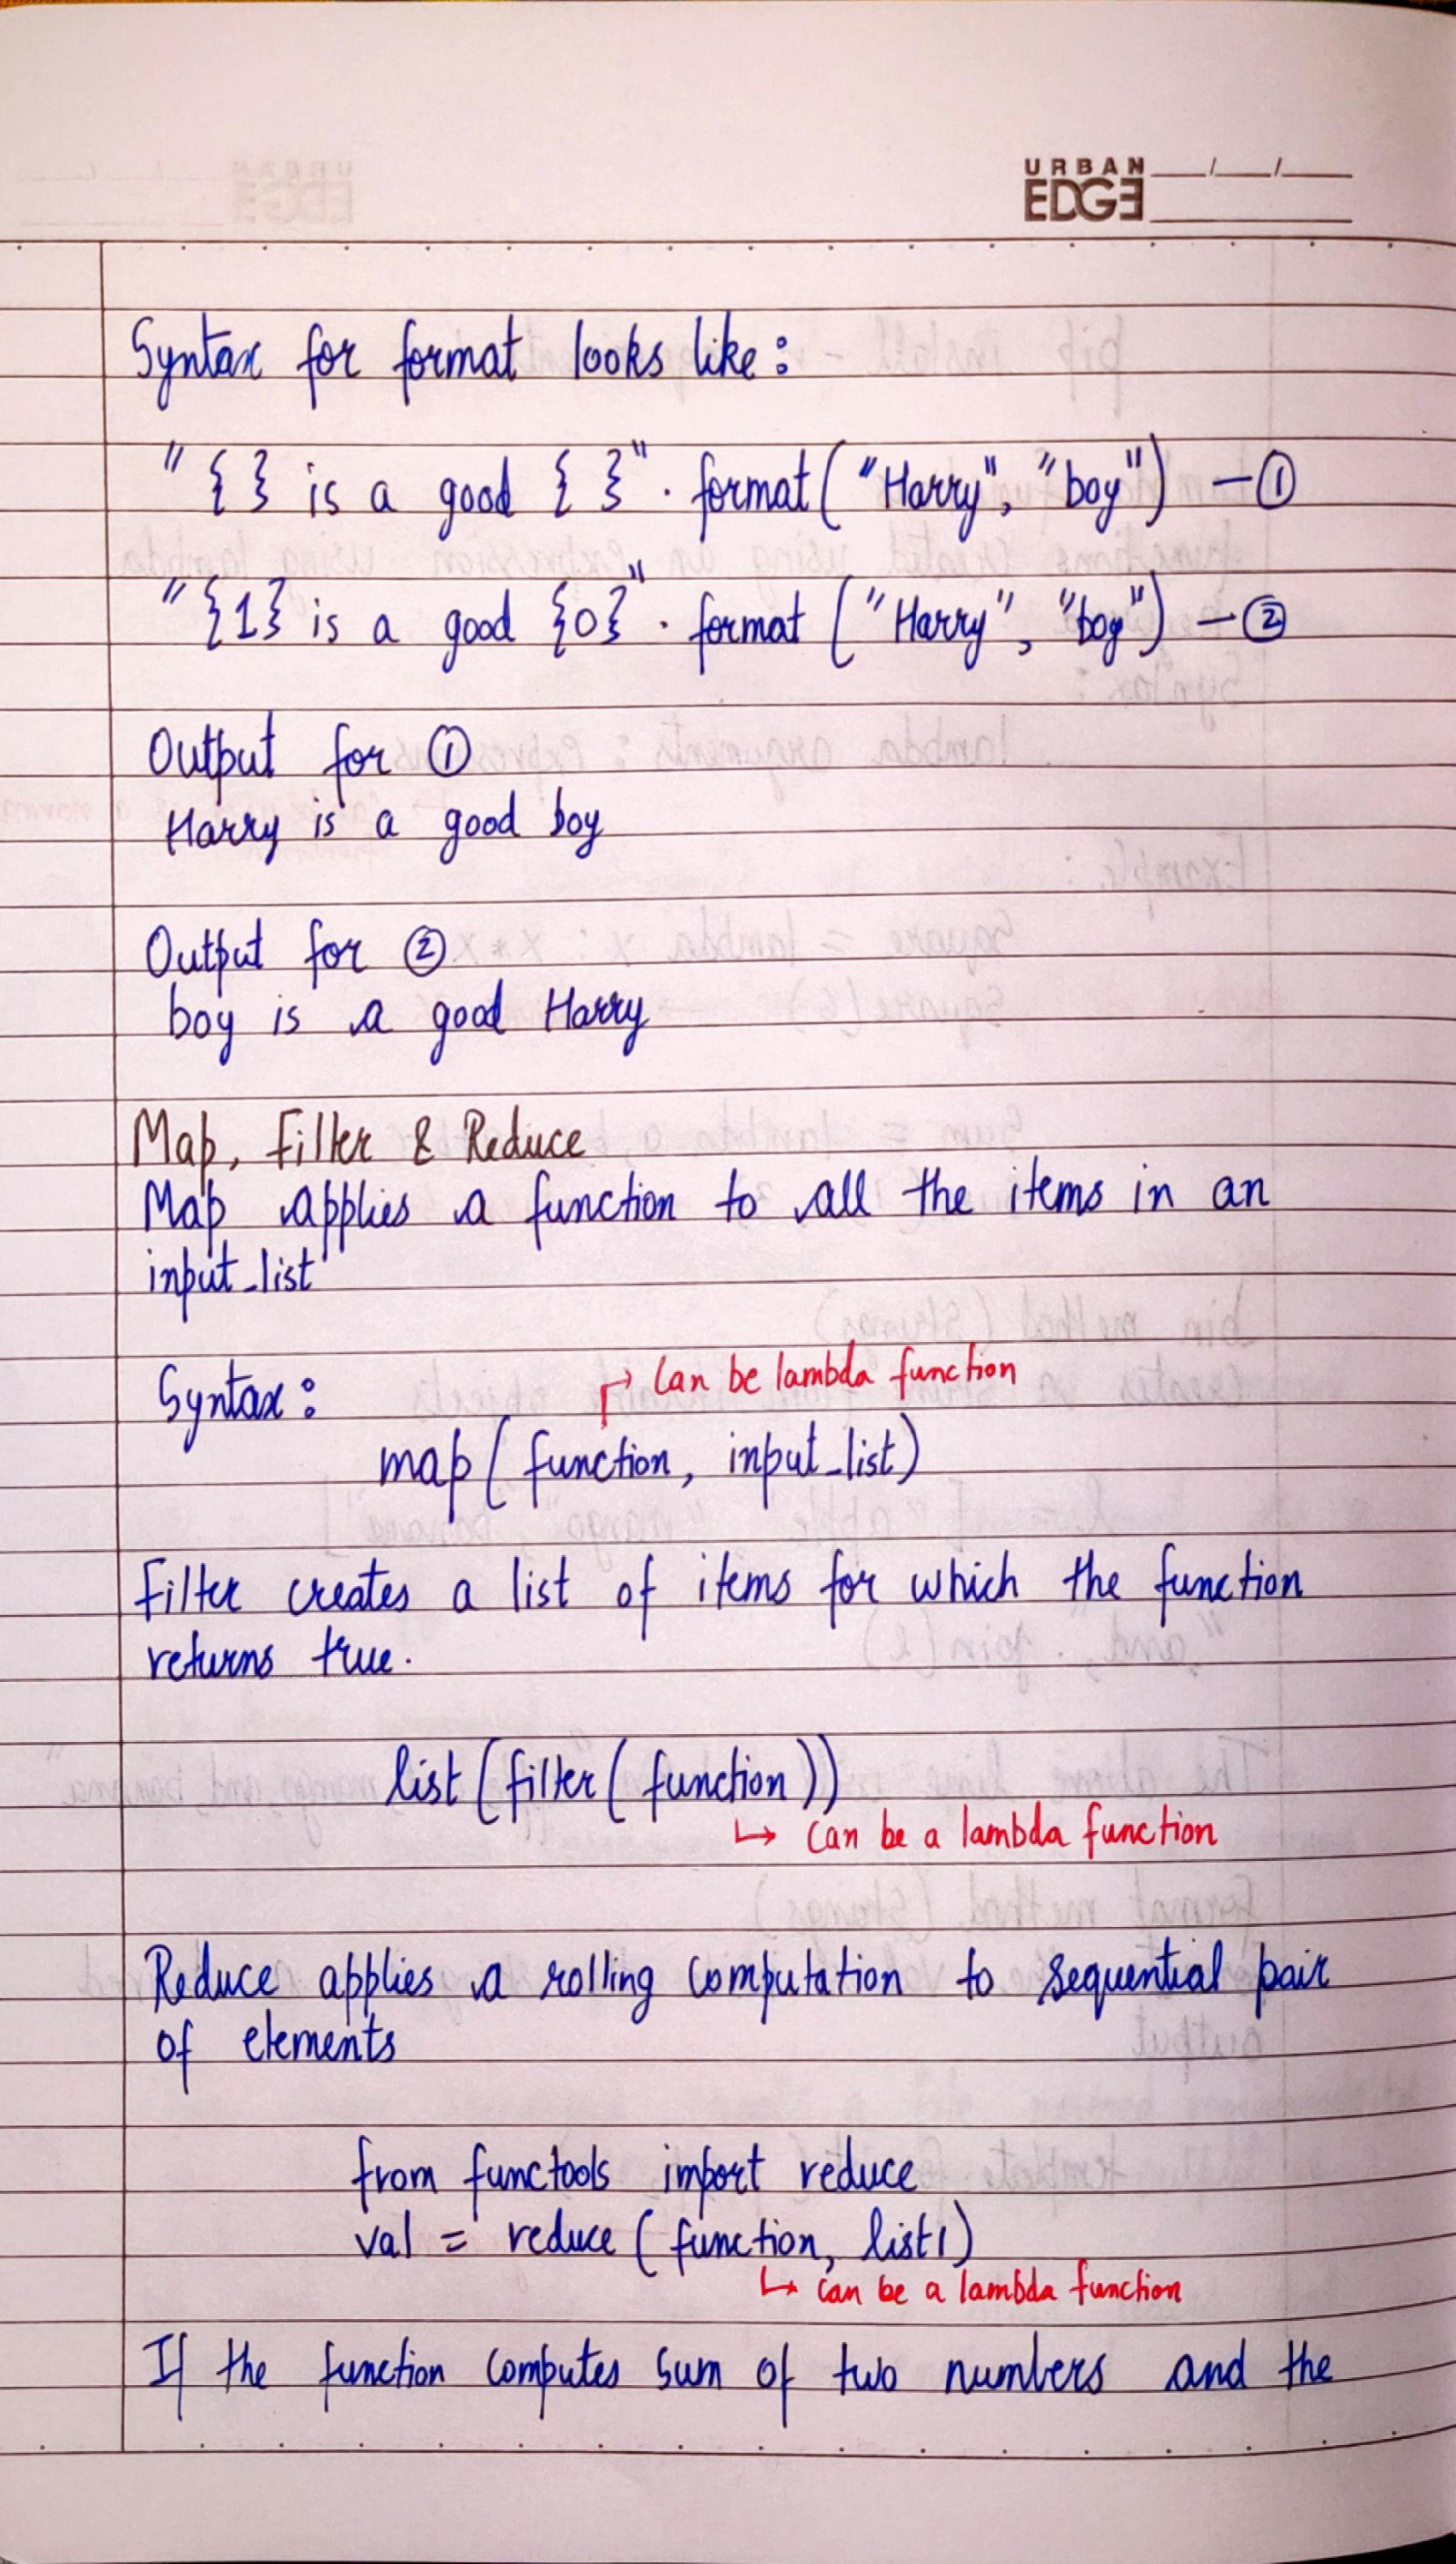 URBAN
EDGE
Syntax for format looks like:
"{} is a good { }" . format("Harry", "boy") - ①
"{1} is a good {0}" . format ("Harry", "boy") - ②
Output for ①
Harry is a good boy
Output for ②
boy is a good Harry
Map, Filter & Reduce
Map applies a function to all the items in an
input_list
Syntax:
can be lambda function
map(function, input_list)
Filter creates a list of items for which the function
returns true.
list(filter(function))
can be a lambda function
Reduce applies a rolling computation to sequential pair
of elements
from functools import reduce
val = reduce (function, list1)
can be a lambda function
If the function computes sum of two numbers and the